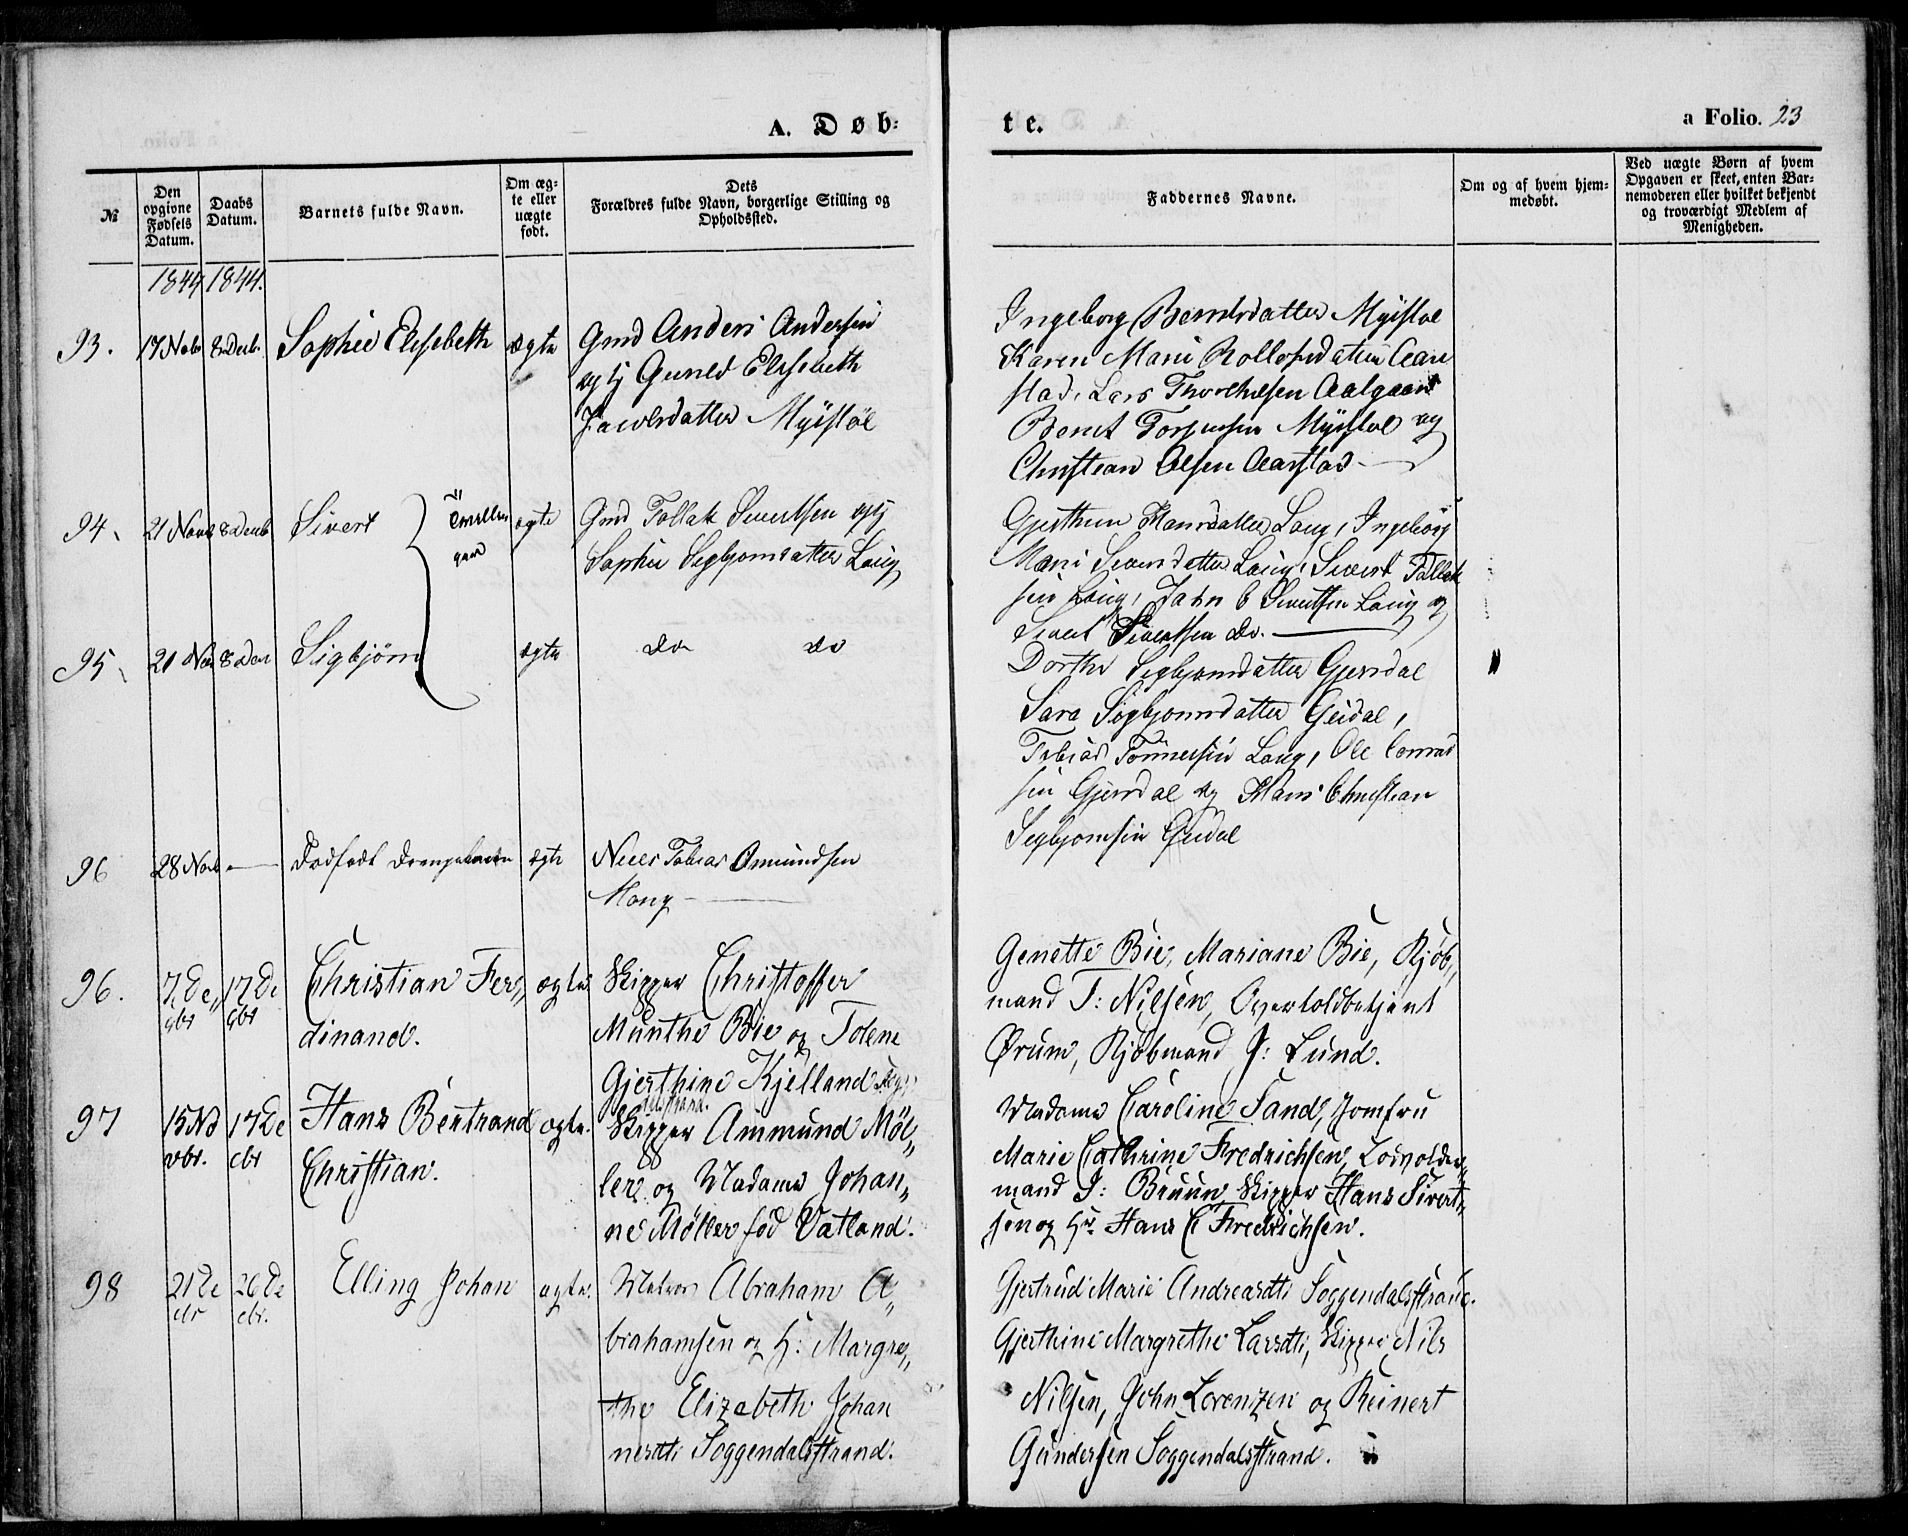 A. Døb:
te.
a Folio. 23
№
Den opgivne Fødsels Datum.
Daabs Datum.
Barnets fulde Navn.
Om æg-
te eller
uægte
født.
Dets
Forældres fulde Navn, borgerlige Stilling og
Opholdssted.
Faddernes Navne.
Om og af hvem hjem-
medøbt.
Ved uægte Børn af hvem
Opgaven er skeet, enten Bar-
nemoderen eller hvilket bekjendt
og troværdigt Medlem af
Menigheden.
1844 1844.
93. 17 Novb 8 Decb. Sophie Elisebeth ægte Gmd Anders Andersen
og Gunild Elisebeth
Jacobsdatter Myistøl
Ingeborg Berntsdatter Myistøl
Karen Marie Rollofsdatter Aar
stad, Lars Aalgaard
Bernt Myistøl og
Christian Olsen Aarstad
94. 21 Novb 8 Decb Sivert Tvillin
ger ægte Gmd Tollak Sivertsen og
Sophie Sigbjornsdatter Laug
Gjerthine Hansdatter Laug, Ingeborg
Marie Sivertsdatter Laug, Sivert Tollak
sen Laug, Sivertsen Laug og
Sivert Sivertsen do.
95. 21 Nov 8 Decb Sigbjørn ægte do do
Dorthe Sigbjornsdatter Gjersdal
Sara Sigbjornsdatter Geidal,
Tobias Tønnesen Laug, Ole Conrad
sen Gjersdal og Hans Christian
Sigbjornsen Geidal
96 28 Novb — Dødfødt Drengebarn ægte Niels Tobias Omundsen
Haug
96. 7, De,,
cbr 17 De
cbr Christian Fer,,
dinand. ægte. Skipper Christoffer
Munthe Bie og Tolene
Gjerthine Kjelland Sog,,
delstrand.
Genette Bie, Mariane Bie, Kjøb,,
mand T: Nilsen, Overtoldbetjent
Ørum, Kjøbmand J: Lund.
97 15 No
vbr. 17 De
cbr Hans Bertrand
Christian. ægte. Skipper Ammund Møl,,
ler og Madame Johan,,
ne Møller fød Vatland.
Madame Caroline Sand, Jomfru
Marie Cathrine Fredrichsen, Lodsolder,,
mand J: Bruun, Skipper Hans Sivert,,
sen og Hr. Hans C Fredrichsen.
98 21 De
cbr 26 De
cbr. Elling Johan ægte. Matros Abraham A,,
brahamsen og H: Margre,,
the Elizabeth Johan
nesdtr Soggendalsstrand.
Gjertrud Marie Andreasdtr Soggendalsstrand.
Gjerthine Margrethe Larsdtr, Skipper Nils
Nilsen, John Lorenzen og Reinert
Gundersen Soggendalsstrand.